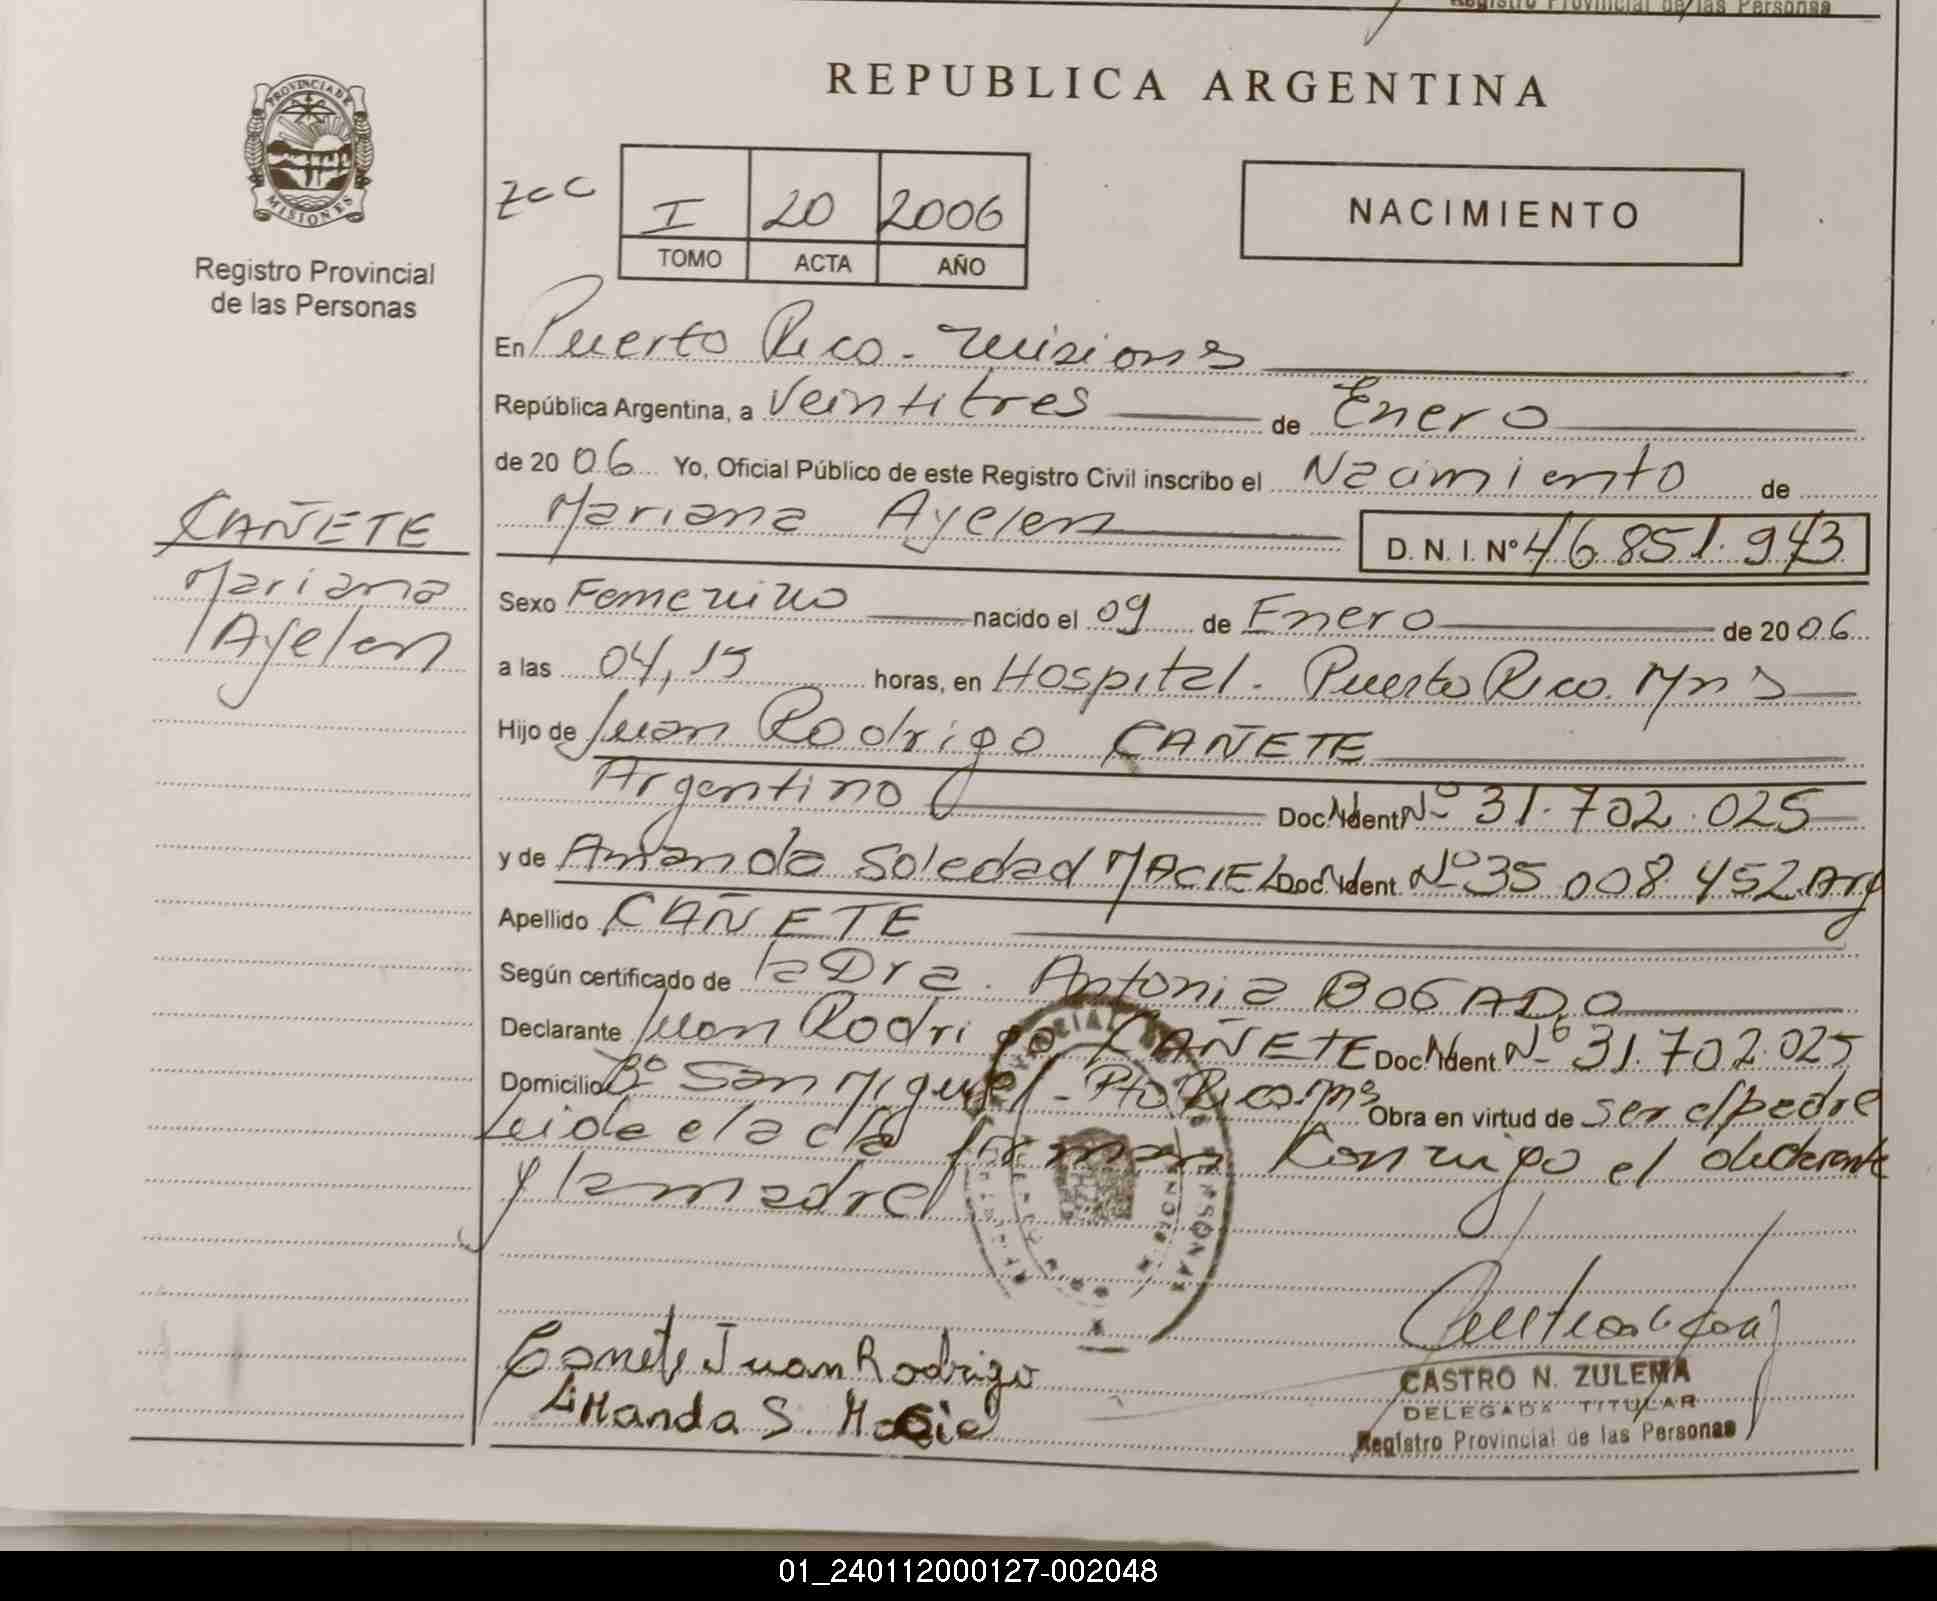 Registro Provincial de las Personas
REPUBLICA ARGENTINA
PROVINCIA DE
MISIONES
Registro Provincial
de las Personas
ZCC
I 20 2006
TOMO ACTA AÑO
NACIMIENTO
En Puerto Rico - Misiones
República Argentina, a Veintitres de Enero
de 2006 Yo, Oficial Público de este Registro Civil inscribo el Nacimiento de
Mariana Ayelen D. N. I. Nº 46.851.943
CAÑETE
Mariana
Ayelen
Sexo Femenino nacido el 09 de Enero de 2006
a las 04,15 horas, en Hospital - Puerto Rico. Mnes
Hijo de Juan Rodrigo CAÑETE
Argentino Doc. Ident Nº 31.702.025
y de Amanda Soledad MACIEL Doc. Ident. Nº 35.008.452. Arg
Apellido CAÑETE
Según certificado de la Dra. Antonia BOGADO
Declarante Juan Rodrigo CAÑETE Doc. Ident. Nº 31.702.025
Domicilio Bº San Miguel - Pto Rico. Mns Obra en virtud de ser el padre
Leida el acta firman conmigo el declarante
y la madre
Cañete Juan Rodrigo
Amanda S. Maciel
CASTRO N. ZULEMA
DELEGADA TITULAR
Registro Provincial de las Personas
01_240112000127-002048